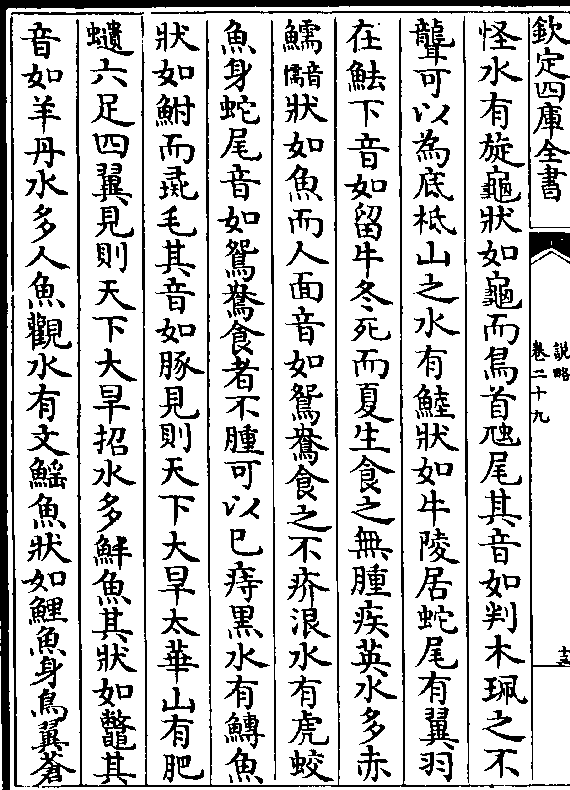 欽定四庫全書
說略
卷二十九
十三
怪水有旋龜狀如龜而鳥首虺尾其音如判木珮之不
聾可以為底柢山之水有鯥狀如牛陵居蛇尾有翼羽
在魼下音如留牛冬死而夏生食之無腫疾英水多赤
鱬音儒狀如魚而人面音如鴛鴦食之不疥泿水有虎蛟
魚身蛇尾音如鴛鴦食者不腫可以已痔黑水有鱄魚
狀如鮒而彘毛其音如豚見則天下大旱太華山有肥
𧔥六足四翼見則天下大旱招水多鮮魚其狀如鼈其
音如羊丹水多人魚觀水有文鰩魚狀如鯉魚身鳥翼蒼